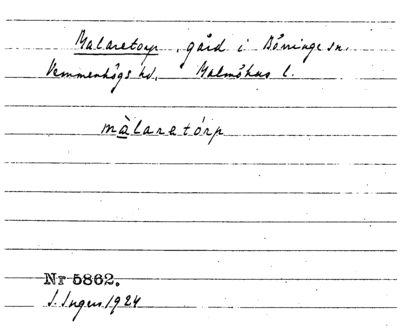 Malaretorp, gård i Börringe sn.
Vemmenhögs hd. Malmöhus l.
màlaretórp
Nr 5862.
S. Ingers 1924